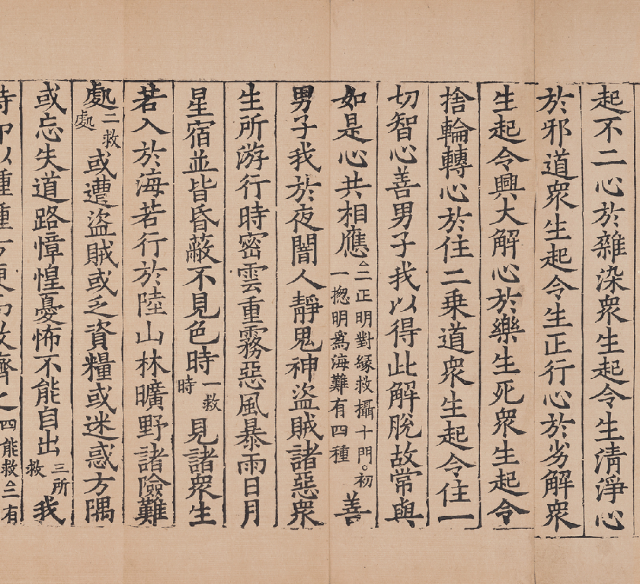 起不二心於雜染衆生起令生清淨心
於邪道衆生起令生正行心於劣解衆
生起令興大解心於樂生死衆生起令
捨輪轉心於住二乗道衆生起令住一
切智心善男子我以得此解脫故常與
如是心共相應 二正明對緣救攝十門。初一揔明爲海難有四種 善
男子我於夜闇人靜鬼神盜賊諸惡衆
生所游行時密雲重霧惡風暴雨日月
星宿並皆昏蔽不見色時 一救時 見諸衆生
若入於海若行於陸山林曠野諸險難
處 二救處 或遭盜賊或乏資糧或迷惑方隅
或忘失道路慞惶憂怖不能自出 三所救 我
時卽以種種方便而救濟之 四能救三有